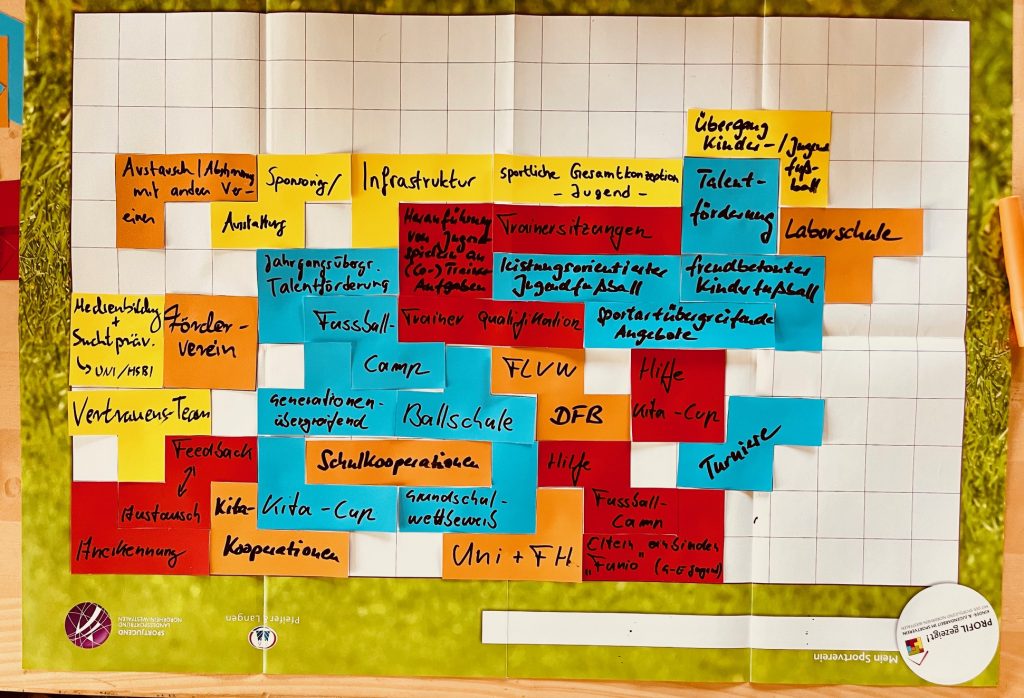 Übergang
Kinder- / Jugend
fuß-
ball
Austausch / Abstimmung
mit anderen Ver-
einen
Sponsoring /
Ausstattung
Infrastruktur
sportliche Gesamtkonzeption
- Jugend -
Talent-
förderung
Heranführung
von Jugend
spielern an
(Co-) Trainer
Aufgaben
Trainersitzungen
Laborschule
Jahrgangsübergr.
Talentförderung
leistungsorientierter
Jugendfußball
freudbetonter
Kinderfußball
Medienbildung
+
Suchtpräv.
↳ UNI/HSBI
Förder-
verein
Fussball-
Camp
Trainer Qualifikation
sportartübergreifende
Angebote
FLVW
DFB
Hilfe
Kita-Cup
Vertrauens-Team
Generationen-
übergreifend
Ballschule
Turniere
Feedback
Austausch
Schulkooperationen
Hilfe
Fussball-
Camp
Kita-
Kooperationen
Kita-Cup
Grundschul-
wettbewerb
Anerkennung
Uni + FH
Eltern einbinden
"Funio" (G-E Jugend)
SPORTJUGEND
LANDESSPORTBUND
NORDRHEIN-WESTFALEN
Pfeifer & Langen
Mein Sportverein
PROFIL gezeigt!
KINDER- & JUGENDARBEIT IM SPORTVEREIN